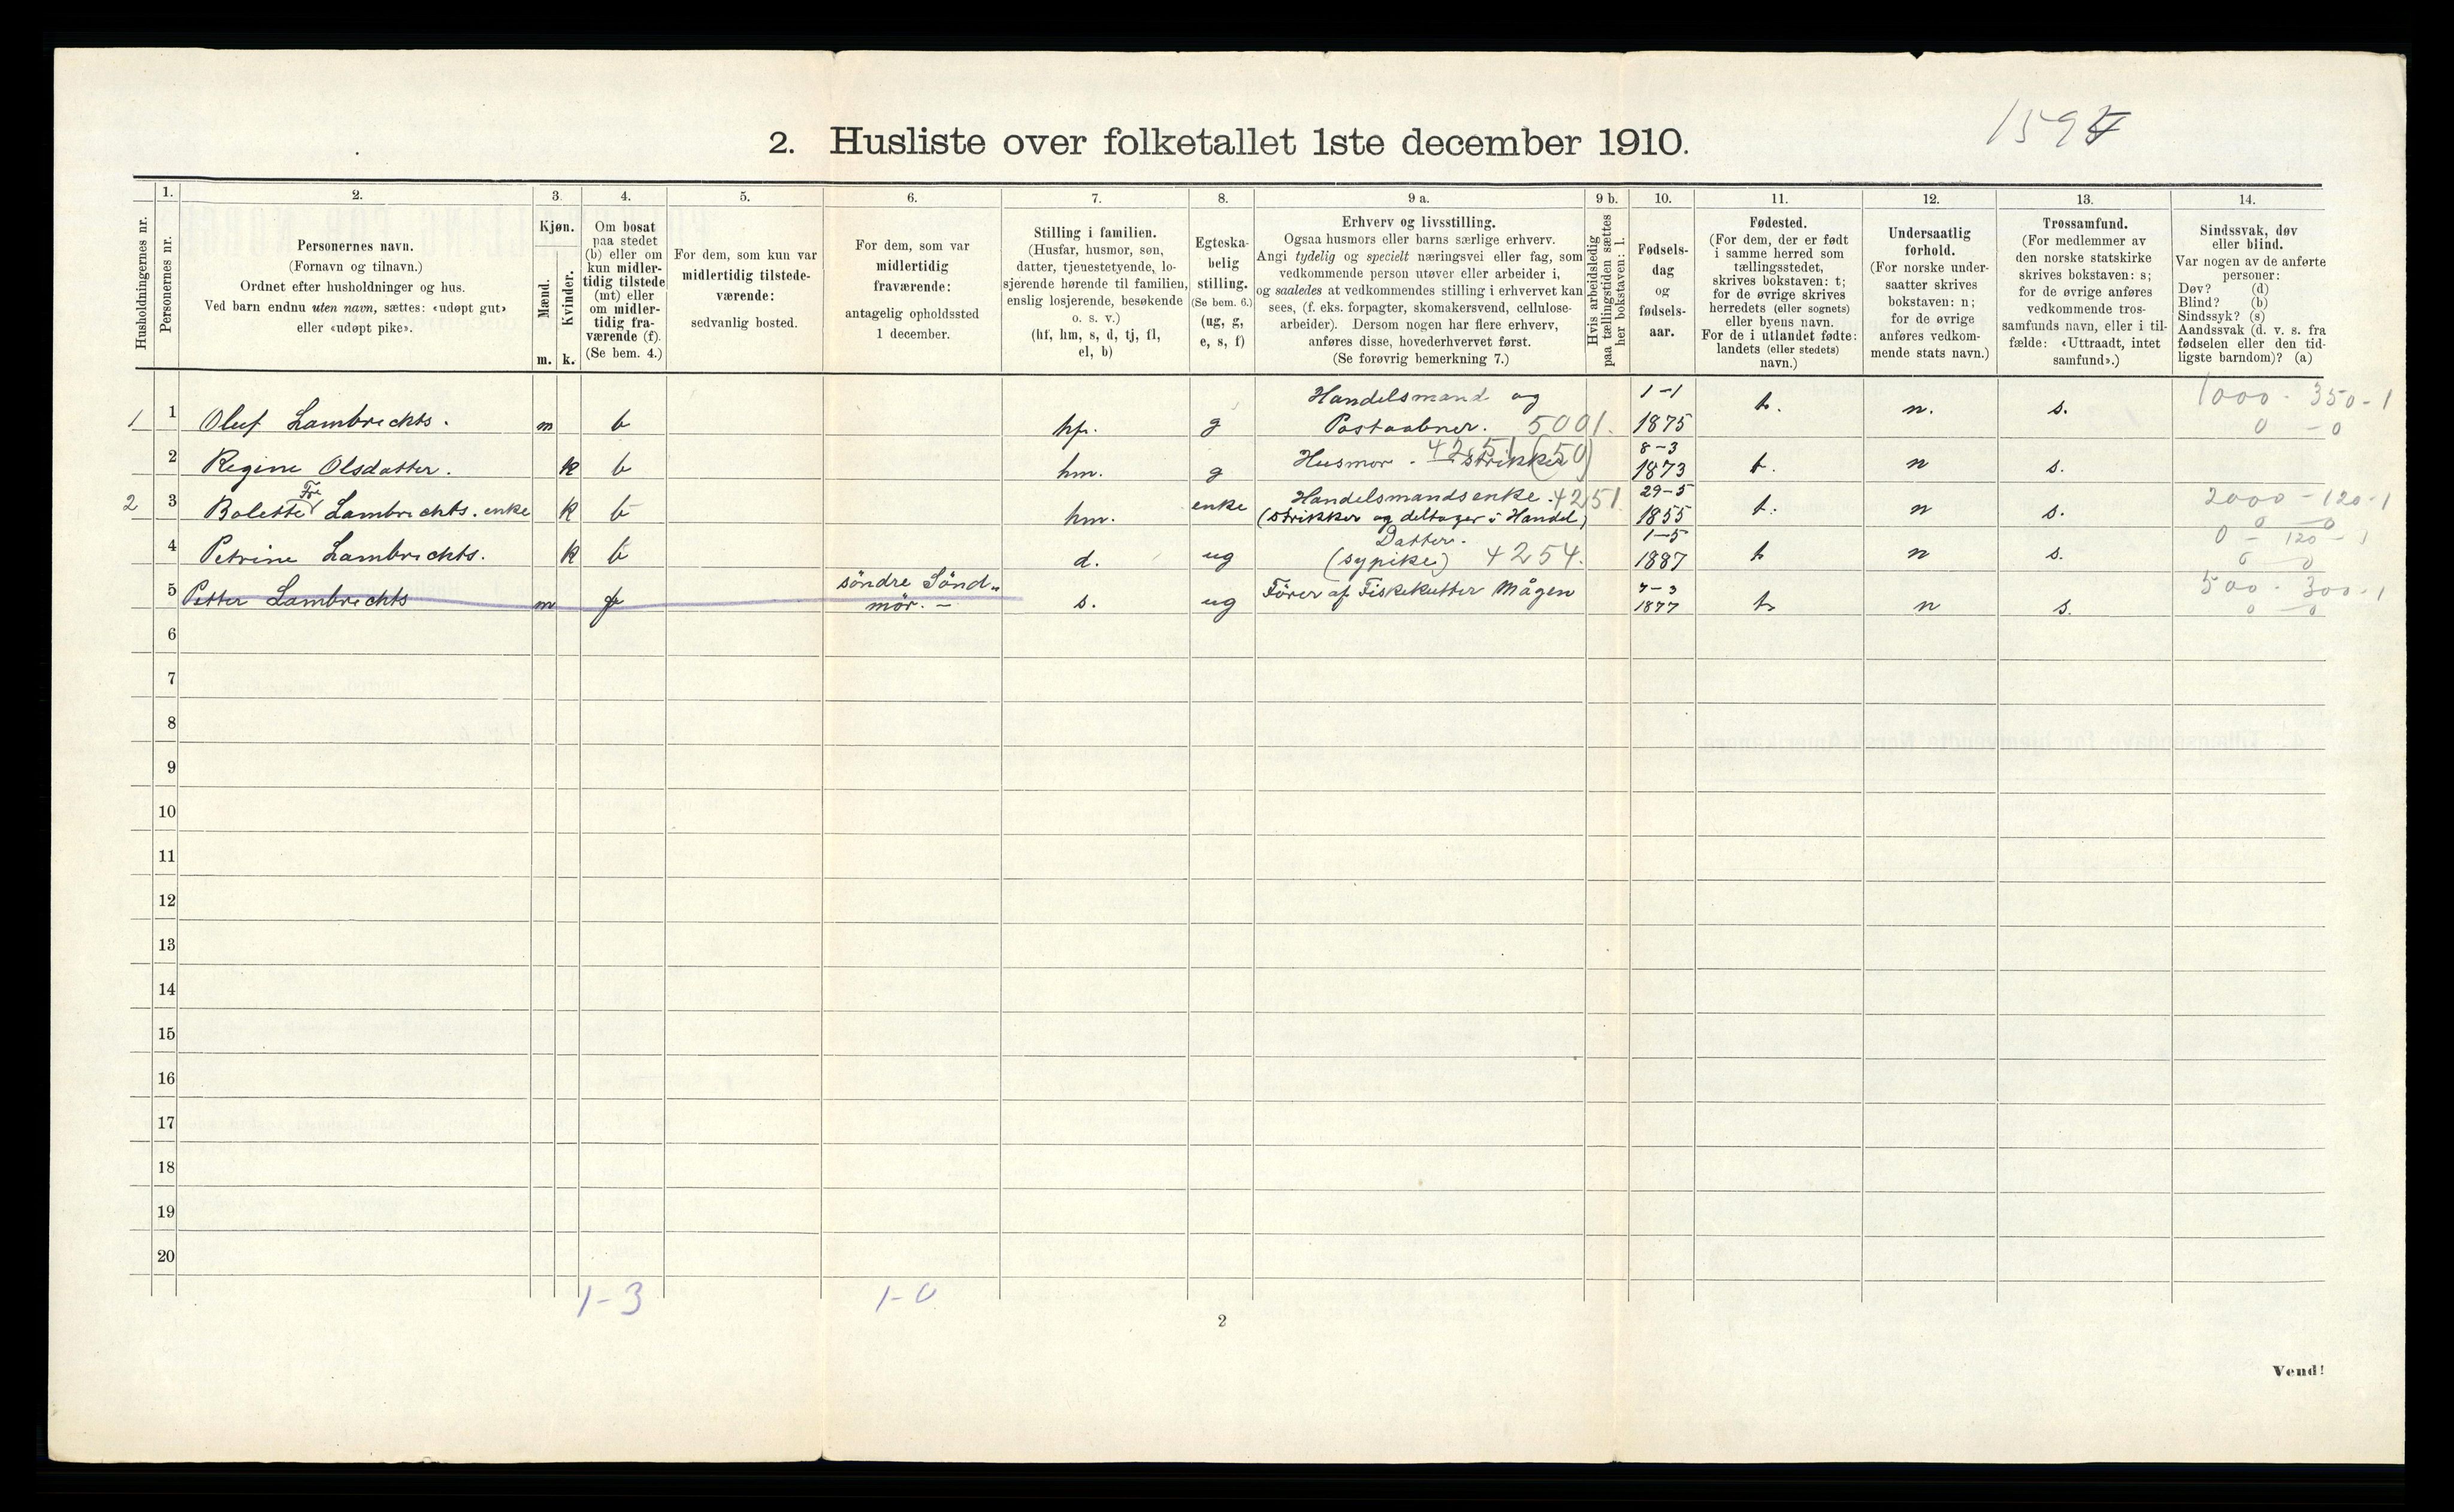 2. Husliste over folketallet 1ste december 1910.
Husholdningernes nr.
1.
Personernes nr.
2.
Personernes navn.
(Fornavn og tilnavn.)
Ordnet efter husholdninger og hus.
Ved barn endnu uten navn, sættes: «udøpt gut»
eller «udøpt pike».
3.
Kjøn.
Mænd.
Kvinder.
m. k.
4.
Om bosat
paa stedet
(b) eller om
kun midler-
tidig tilstede
(mt) eller
om midler-
tidig fra-
værende (f).
(Se bem. 4.)
5.
For dem, som kun var
midlertidig tilstede-
værende:
sedvanlig bosted.
6.
For dem, som var
midlertidig
fraværende:
antagelig opholdssted
1 december.
7.
Stilling i familien.
(Husfar, husmor, søn,
datter, tjenestetyende, lo-
sjerende hørende til familien,
enslig losjerende, besøkende
o. s. v.)
(hf, hm, s, d, tj, fl,
el, b)
8.
Egteska-
belig
stilling.
(Se bem. 6.)
(ug, g,
e, s, f)
9 a.
Erhverv og livsstilling.
Ogsaa husmors eller barns særlige erhverv.
Angi tydelig og specielt næringsvei eller fag, som
vedkommende person utøver eller arbeider i,
og saaledes at vedkommendes stilling i erhvervet kan
sees, (f. eks. forpagter, skomakersvend, cellulose-
arbeider). Dersom nogen har flere erhverv,
anføres disse, hovederhvervet først.
(Se forøvrig bemerkning 7.)
9 b.
Hvis arbeidsledig
paa tællingstiden sættes
her bokstaven: l.
10.
Fødsels-
dag
og
fødsels-
aar.
11.
Fødested.
(For dem, der er født
i samme herred som
tællingsstedet,
skrives bokstaven: t;
for de øvrige skrives
herredets (eller sognets)
eller byens navn.
For de i utlandet fødte:
landets (eller stedets)
navn.)
12.
Undersaatlig
forhold.
(For norske under-
saatter skrives
bokstaven: n;
for de øvrige
anføres vedkom-
mende stats navn.)
13.
Trossamfund.
(For medlemmer av
den norske statskirke
skrives bokstaven: s;
for de øvrige anføres
vedkommende tros-
samfunds navn, eller i til-
fælde: «Uttraadt, intet
samfund».)
14.
Sindssvak, døv
eller blind.
Var nogen av de anførte
personer:
Døv? (d)
Blind? (b)
Sindssyk? (s)
Aandssvak (d. v. s. fra
fødselen eller den tid-
ligste barndom)? (a)
Handelsmand og 1-1 1000 - 350 - 1
1 1 Oluf Lambrechts. m b hf. g Postaabner. 5001. 1875 t. n. s. 0 - 0
4251 (50) 8-3
2 Regine Olsdatter. k b hm. g Husmor. - strikker 1873 t. n s.
Fre Handelsmandsenke. 4251. 29-5 2000 - 120 - 1
2 3 Bolette Lambrechts. enke k b hm. enke (strikker og deltager i Handel) 1855 t. n s. 0 - 0
Datter. 1-5 0 - 120 - 1
4 Petrine Lambrechts. k b d. ug (sypike) 4254. 1887 t n s. 0 0
söndre Sönd- 7-3 500 - 300 - 1
5 Petter Lambrechts m f mör. - s. ug Förer af Fiskekutter Mågen 1877 t n s. 0 - 0
6
7
8
9
10
11
12
13
14
15
16
17
18
19
20
1-3 1-0
2
Vend!